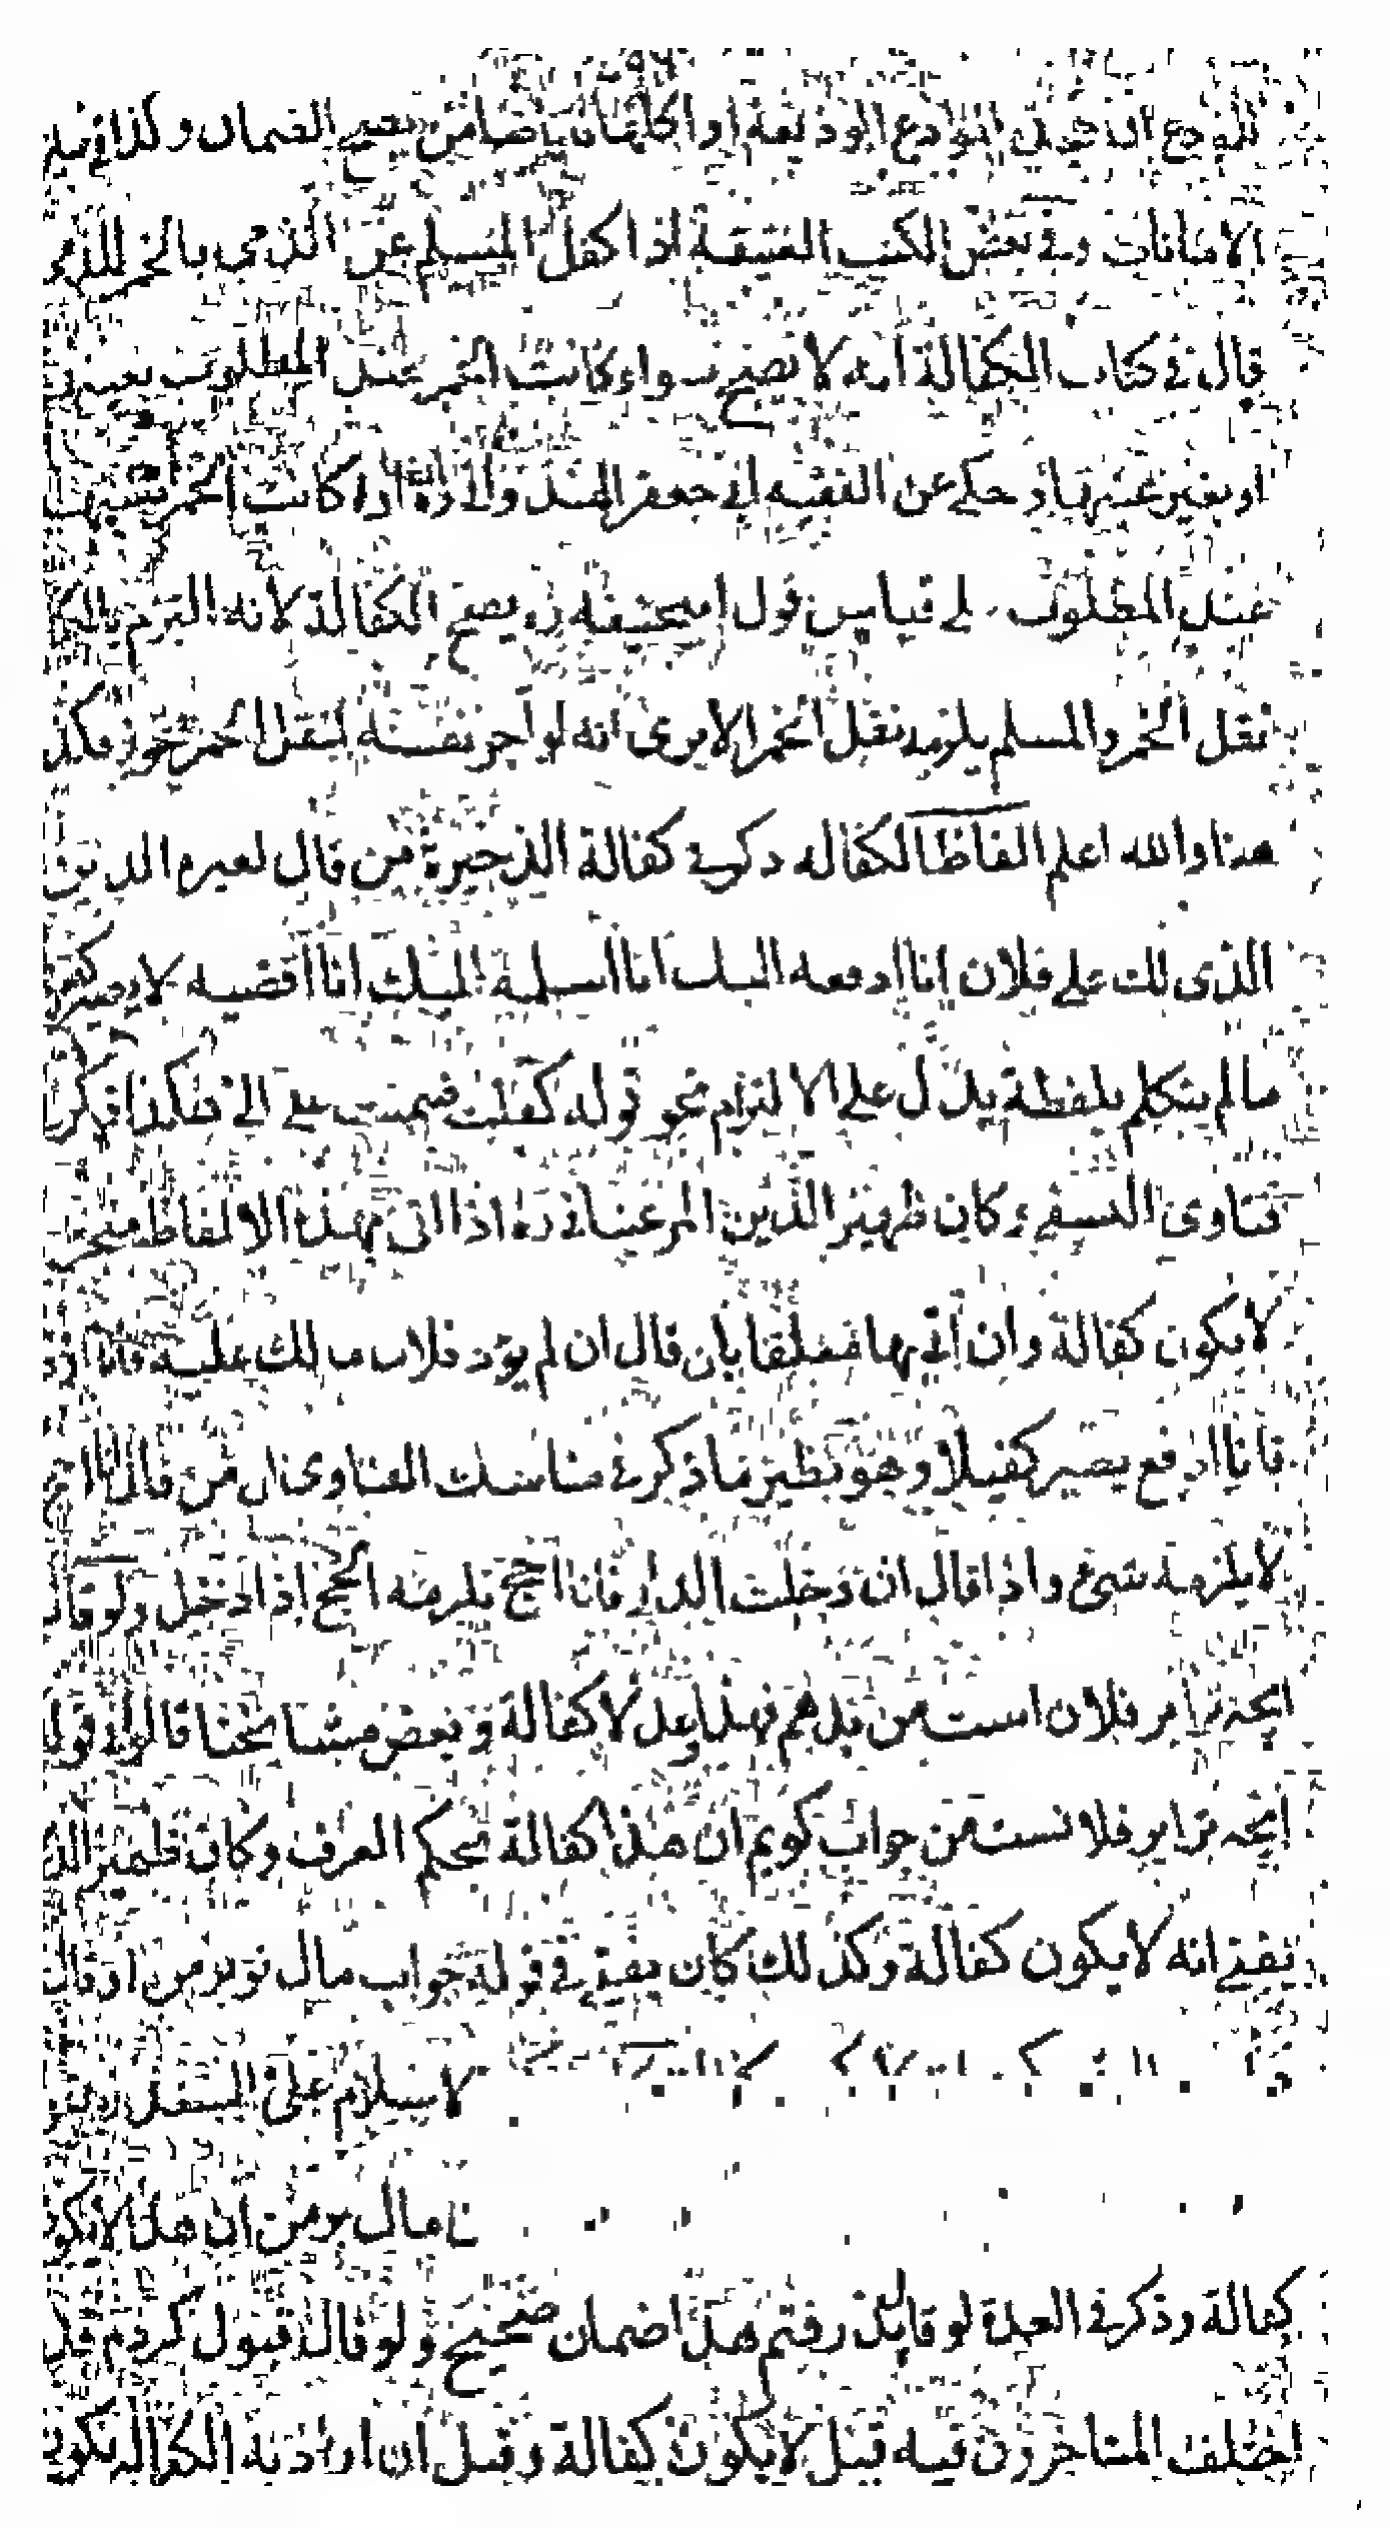 للمودع ان المودع الوديعة او ضامن يصح الضمان وكذا في
الامانات وفي بعض الكتب العتيقة اذا كفل المسلم عن الذمي بالخمر للذمي
قال في كتاب الكفالة انه لا يصح سواء كانت الخمر عند المطلوب بعينها
او بغير عينها وحكي عن الفقيه ابي جعفر الهندواني ره اذا كانت الخمر
عند المطلوب على قياس قول ابيحنيفة ره يصح الكفالة لانه التزم
نقل الخمر والمسلم يلزمه نقل الخمر الا يرى انه لو آجر نفسه لينقل الخمر يجوز فكذا
هذا والله اعلم الفاظ الكفاله ذكر في كفالة الذخيرة من قال لغيره الدين
الذي لك على فلان انا ادفعه اليك انا اسلمه اليك انا اقضيه لا يصير
ما لم يتكلم بلفظة يدل على الالتزام نحو قوله كفلت ضمنت علي الي هكذا ذكر
فتاوى النسفي وكان ظهير الدين المرغيناني ره اذا اتى بهذه الالفاظ منجزا
لا يكون كفالة وان اتى بها معلقا بان قال ان لم يؤد فلان مالك عليه فانا
فانا ادفع يصير كفيلا وهو نظير ما ذكر في مناسك الفتاوى ان من قال انا احج
لا يلزمه شيء واذا قال ان دخلت الدار فانا احج يلزمه الحج اذا دخل ولو قال
انچه ترا بر فلان است من بدهم فهذا وعد لا كفالة وبعض مشايخنا قالوا في قوله
انچه ترا بر فلانست من جواب گويم ان هذا كفالة بحكم العرف وكان ظهير الدين
يفتي انه لا يكون كفالة وكذلك كان يفتي في قوله جواب مال تو بر من او قال
لا سلام على
مال بر من ان هذا لا يكون
كفالة وذكر في العدة لو قال پذرفتم هذا ضمان صحيح ولو قال قبول كردم فقد
اختلف المتاخرون فيه قيل لا يكون كفالة وقيل ان اراد به الكفالة يكون